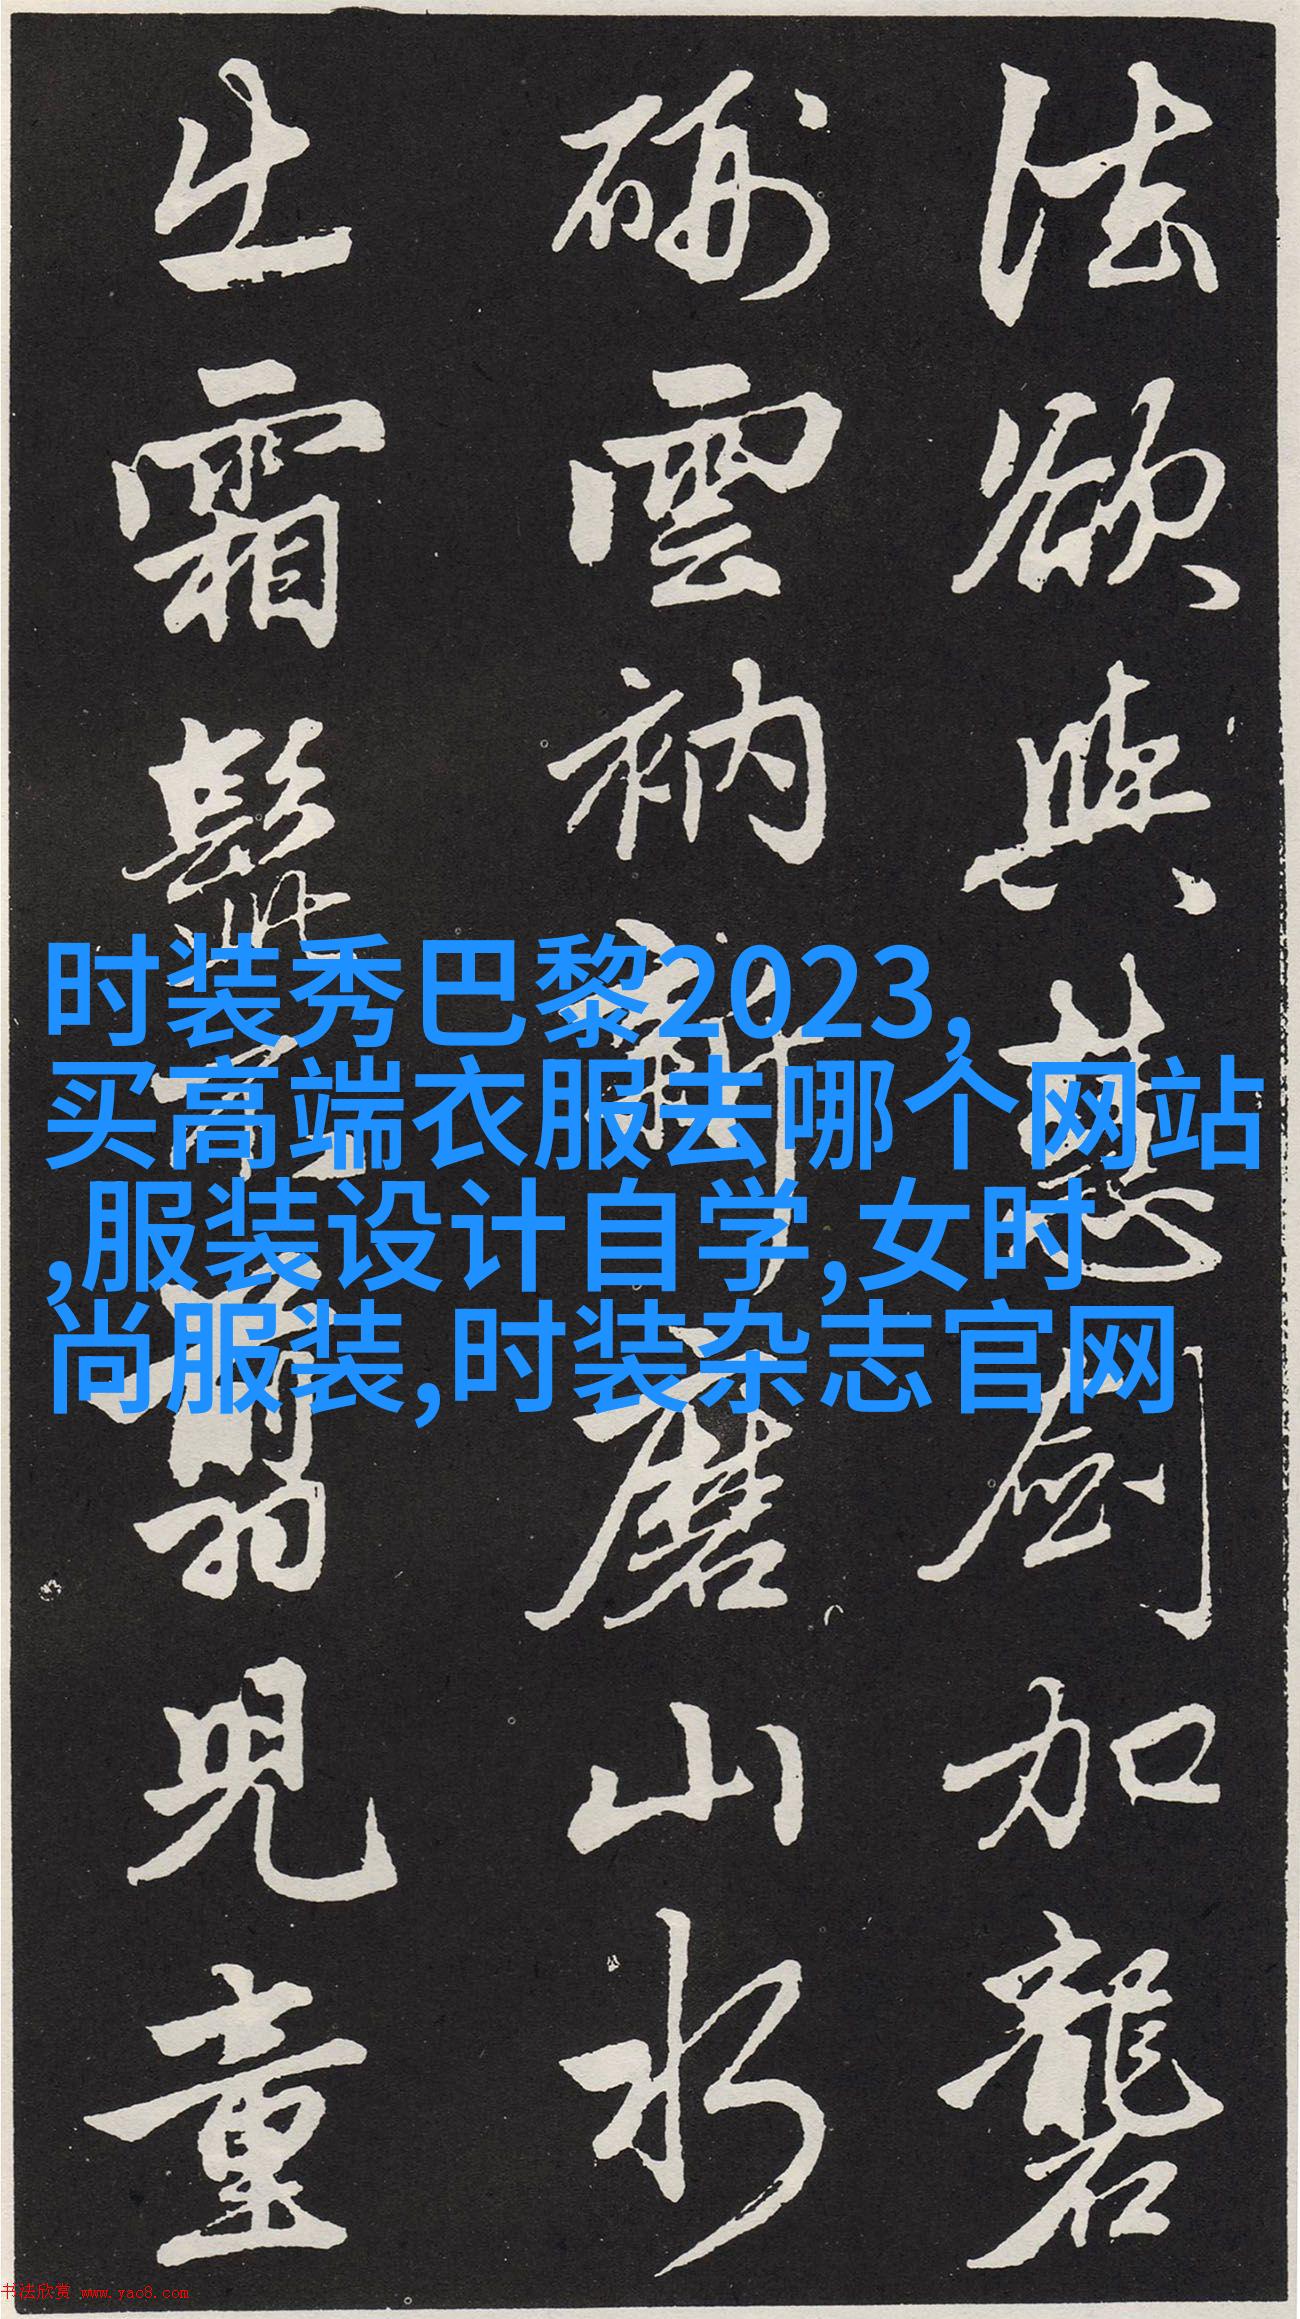 法欲與慧劍加礱
硎雲衲新磨山水
出霜髭剪兒童
时装秀巴黎2023,
买高端衣服去哪个网站
,服装设计自学,女时
尚服装,时装杂志官网
书法欣赏 www.yac8.com